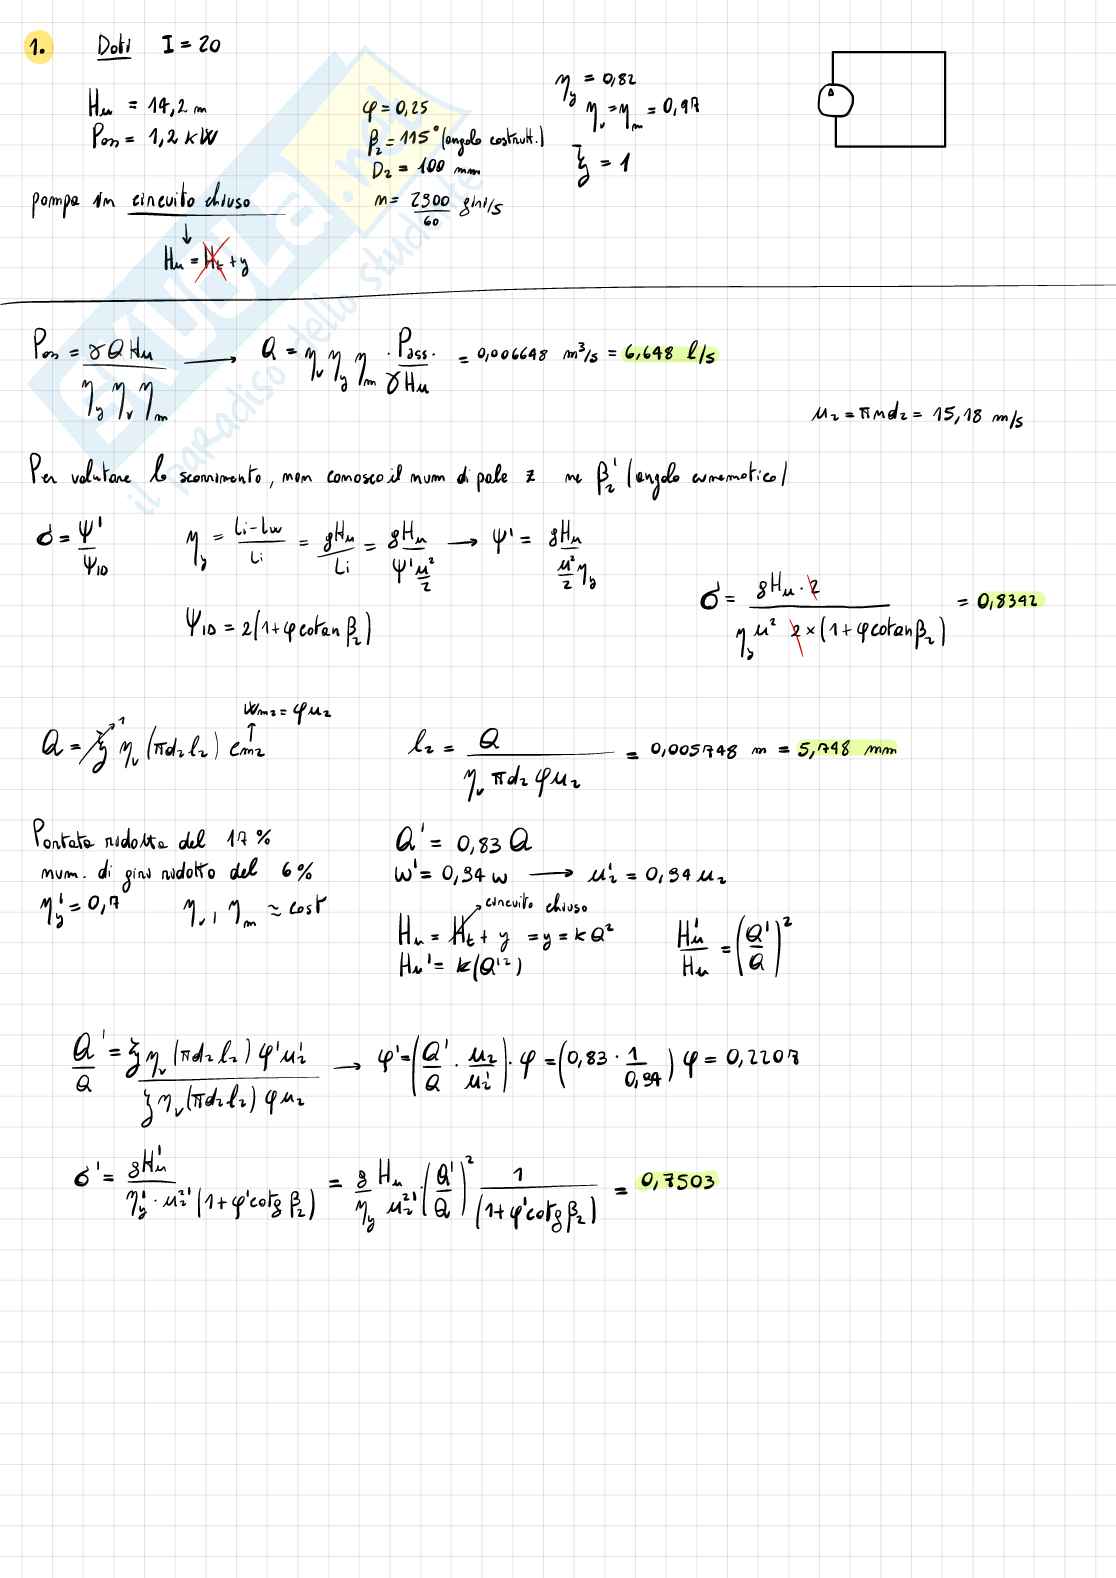 1. Dati I = 20
Hu = 14,2 m
Pass = 1,2 kW
φ = 0,25
β₂ = 115° (angolo costrutt.)
D₂ = 100 mm
n = 2900/60 giri/s
ηy = 0,82
ηv = ηm = 0,97
ξ = 1
pompa in circuito chiuso
↓
Hu = Ht + y
Pass = γQHu / ηy ηv ηm → Q = ηv ηy ηm · Pass. / γHu = 0,006648 m³/s = 6,648 l/s
u₂ = πnd₂ = 15,18 m/s
Per valutare lo scorrimento, non conosco il num di pale z ne β₂' (angolo cinematico)
σ = ψ'/ψID
ηy = (Li-Lw)/Li = gHu/Li = gHu/(ψ'u²/2) → ψ' = gHu/(u²/2 ηy)
ψID = 2(1+φcotan β₂)
σ = gHu·2 / ηy u² 2×(1+φcotan β₂) = 0,8342
wm2 = φu₂
Q = ξ¹ ηv (πd₂l₂) cm2
l₂ = Q / ηv πd₂ φu₂ = 0,005748 m = 5,748 mm
Portata ridotta del 17%
num. di giri ridotto del 6%
ηy' = 0,7 ηv, ηm ≈ cost
Q' = 0,83 Q
w' = 0,94 w → u₂' = 0,94 u₂
circuito chiuso
Hu = Ht + y = y = kQ²
Hu' = k(Q'²)
Hu'/Hu = (Q'/Q)²
Q'/Q = ξ ηv (πd₂l₂) φ'u₂' / ξ ηv (πd₂l₂) φu₂ → φ' = (Q'/Q · u₂/u₂')·φ = (0,83 · 1/0,94) φ = 0,2207
σ' = gHu' / ηy' · u₂²' (1+φ'cotg β₂) = g/ηy Hu/u₂²' · (Q'/Q)² 1/(1+φ'cotg β₂) = 0,7503
SKUOLA.net
il paradiso dello studente